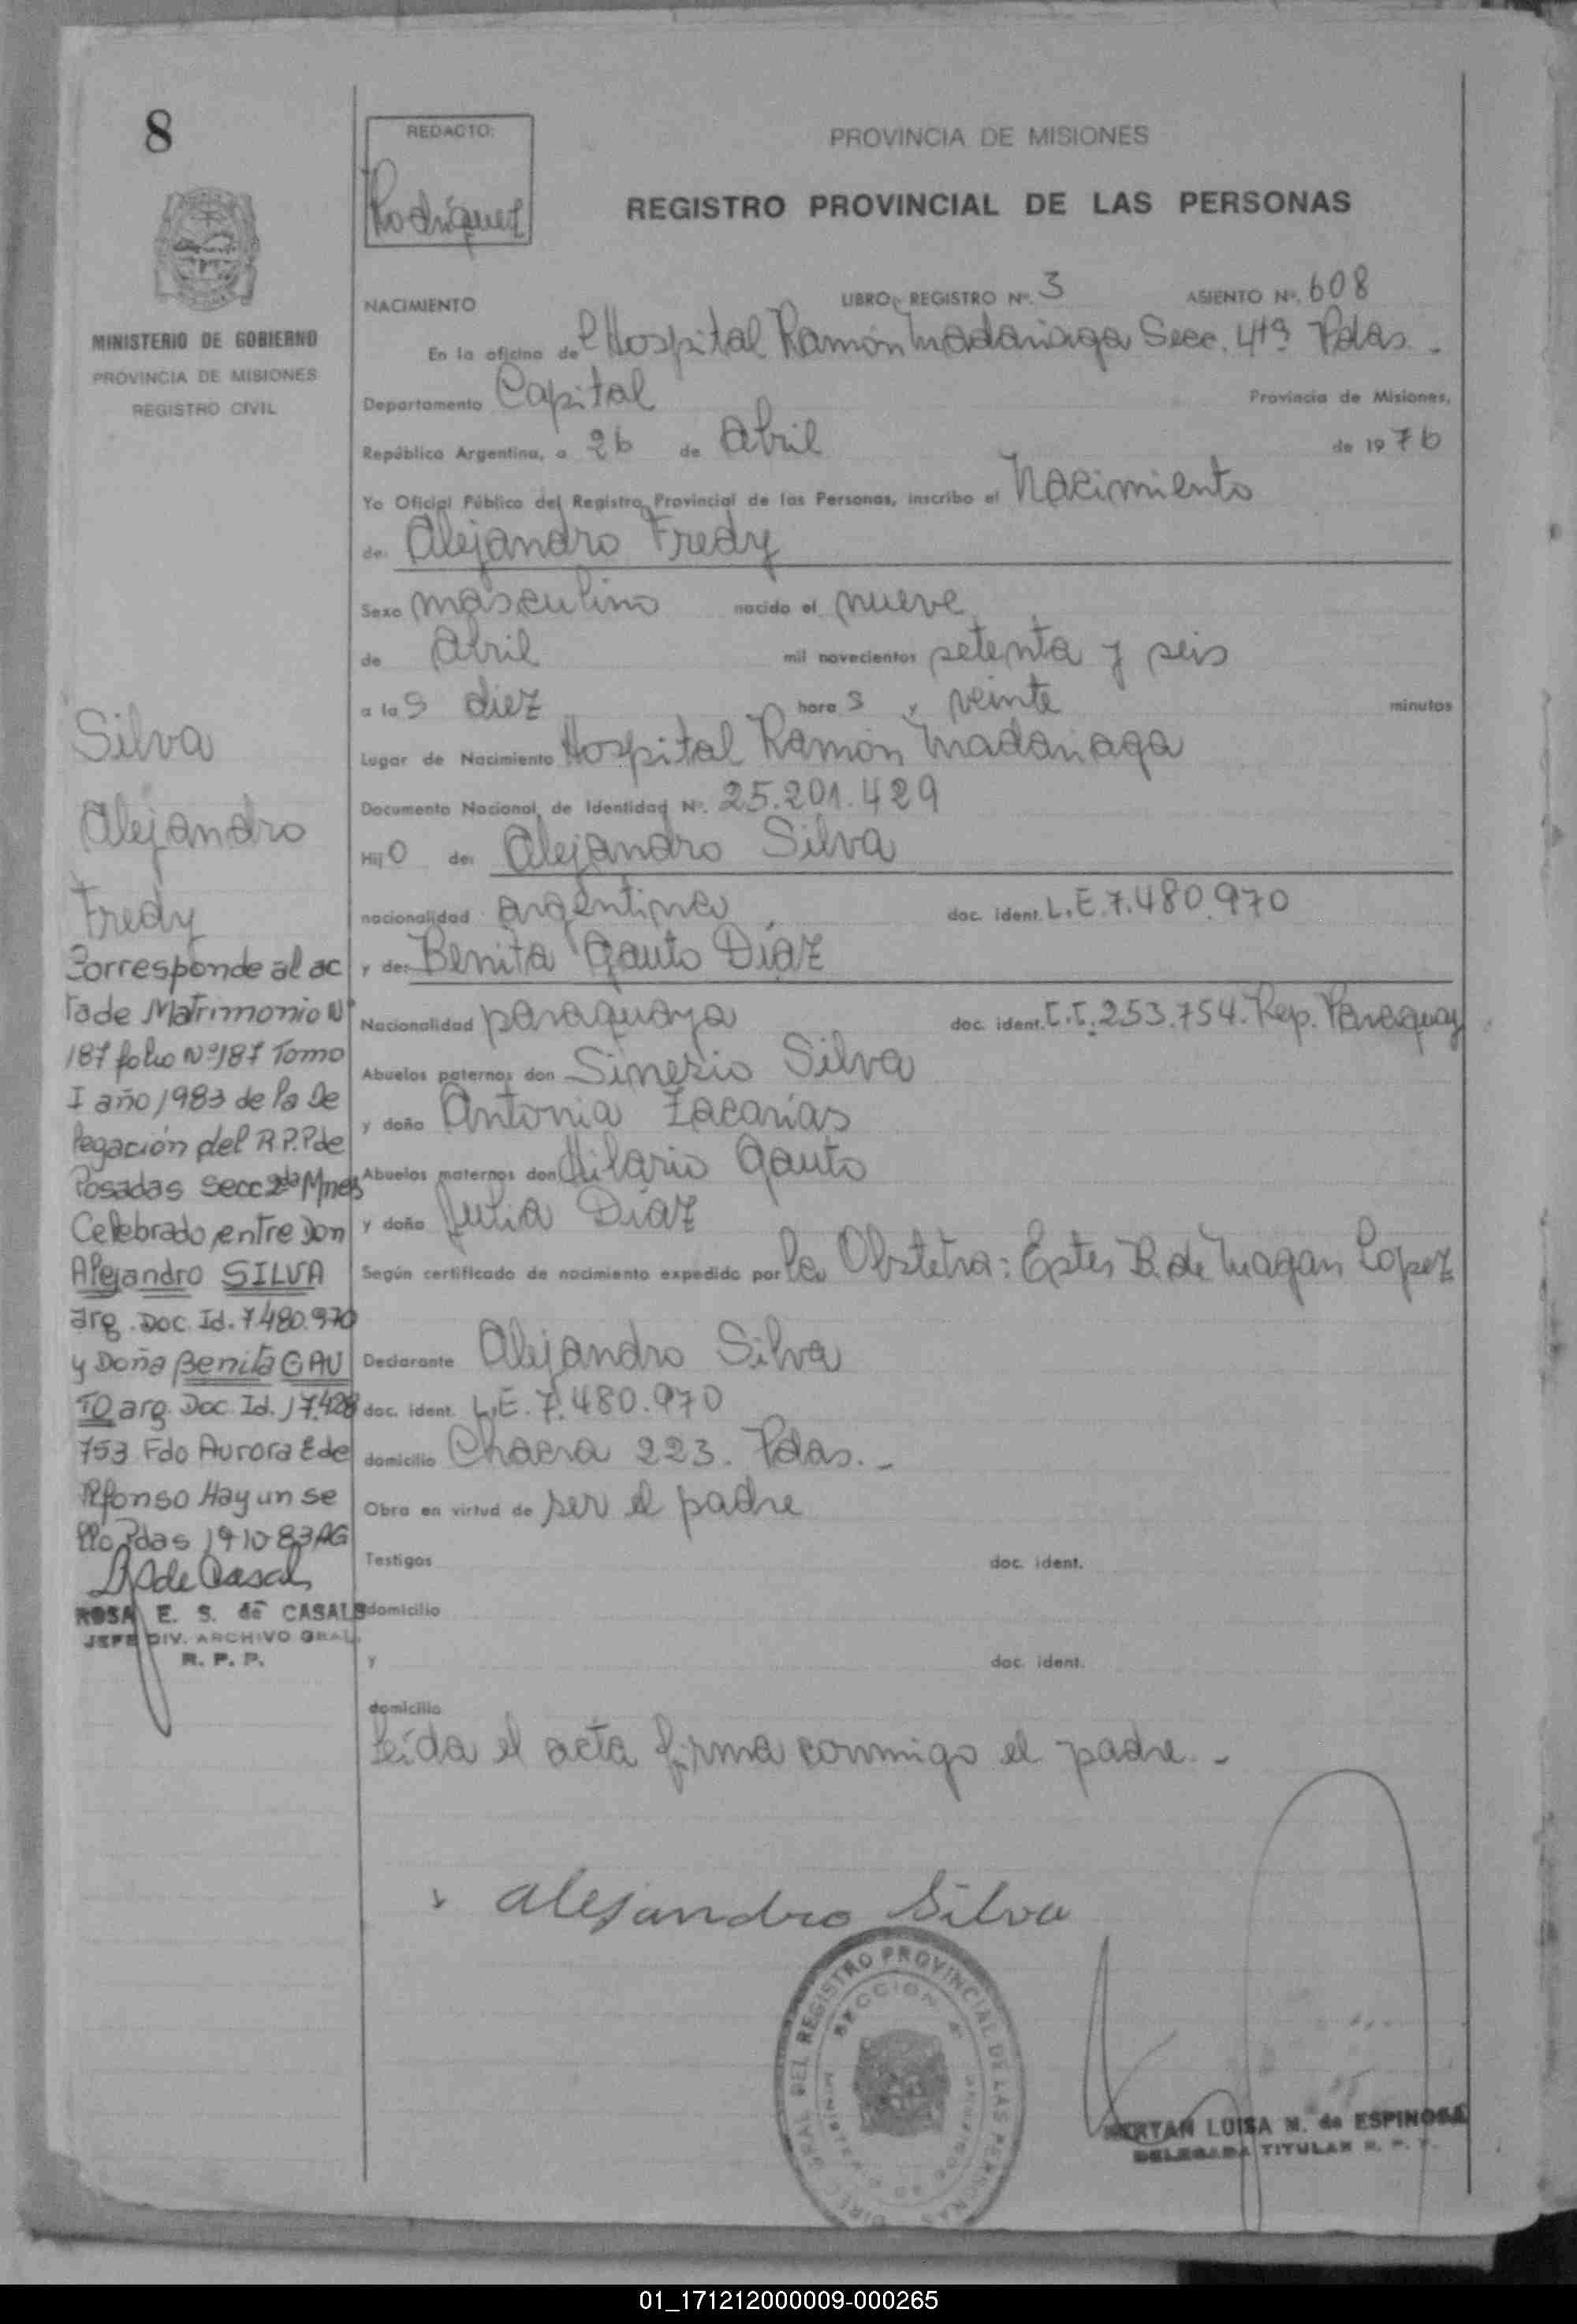 8
REDACTO:
Rodríguez
PROVINCIA DE MISIONES
REGISTRO PROVINCIAL DE LAS PERSONAS
MINISTERIO DE GOBIERNO
PROVINCIA DE MISIONES
REGISTRO CIVIL
NACIMIENTO LIBRO REGISTRO Nº. 3 ASIENTO Nº. 608
En la oficina del Hospital Ramón Madariaga Secc. 4ta Pdas.
Departamento Capital Provincia de Misiones,
República Argentina, a 26 de Abril de 1976
Yo Oficial Público del Registro Provincial de las Personas, inscribo el Nacimiento
de: Alejandro Fredy
Sexo masculino nacido el nueve
de Abril mil novecientos setenta y seis
a las diez horas y veinte minutos
Lugar de Nacimiento Hospital Ramón Madariaga
Documento Nacional de Identidad Nº. 25.201.429
Hijo de: Alejandro Silva
nacionalidad argentina doc. ident. L.E. 7.480.970
y de: Benita Gauto Díaz
Nacionalidad paraguaya doc. ident. C.I. 253.754. Rep. Paraguay
Abuelos paternos don Sinesio Silva
y doña Antonia Zacarías
Abuelos maternos don Hilario Gauto
y doña Julia Díaz
Según certificado de nacimiento expedido por la Obstetra: Ester B. de Magan Lopez
Declarante Alejandro Silva
doc. ident. L.E. 7.480.970
domicilio Chacra 223. Pdas.-
Obra en virtud de ser el padre
Testigos doc. ident.
domicilio
y doc. ident.
domicilio
leída el acta firma conmigo el padre.-
Silva
Alejandro
Fredy
Corresponde al ac
ta de Matrimonio Nº
187 folio Nº 187 Tomo
I año 1983 de la De
legación del R.P.P de
Posadas Secc 2da Mnes
Celebrado entre Don
Alejandro SILVA
arg. Doc. Id. 7.480.970
y Doña Benita GAU
TO arg. Doc. Id. 17.428
753 Fdo Aurora E de
Alfonso Hay un se
llo Pdas 19 10 83 AG
de Casals
ROSA E. S. de CASALS
JEFE DIV. ARCHIVO GRAL.
R. P. P.
Alejandro Silva
DIREC. GRAL DEL REGISTRO PROVINCIAL DE LAS PERSONAS
SECCION 4ª
LUISA M. de ESPINOSA
DELEGADA TITULAR R. P. P.
01_171212000009-000265